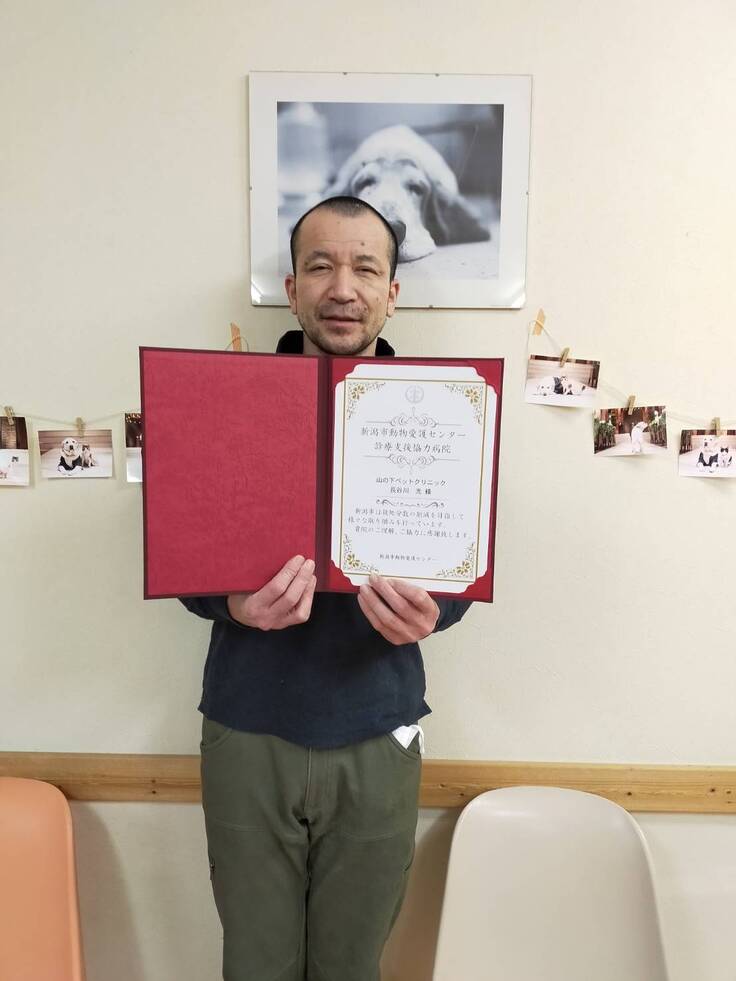 新潟市動物愛護センター
診療支援協力病院
山の下ペットクリニック
長谷川 光 様
新潟市は殺処分数の削減を目指して
様々な取り組みを行っています。
貴院のご理解、ご協力に感謝致します。
新潟市動物愛護センター